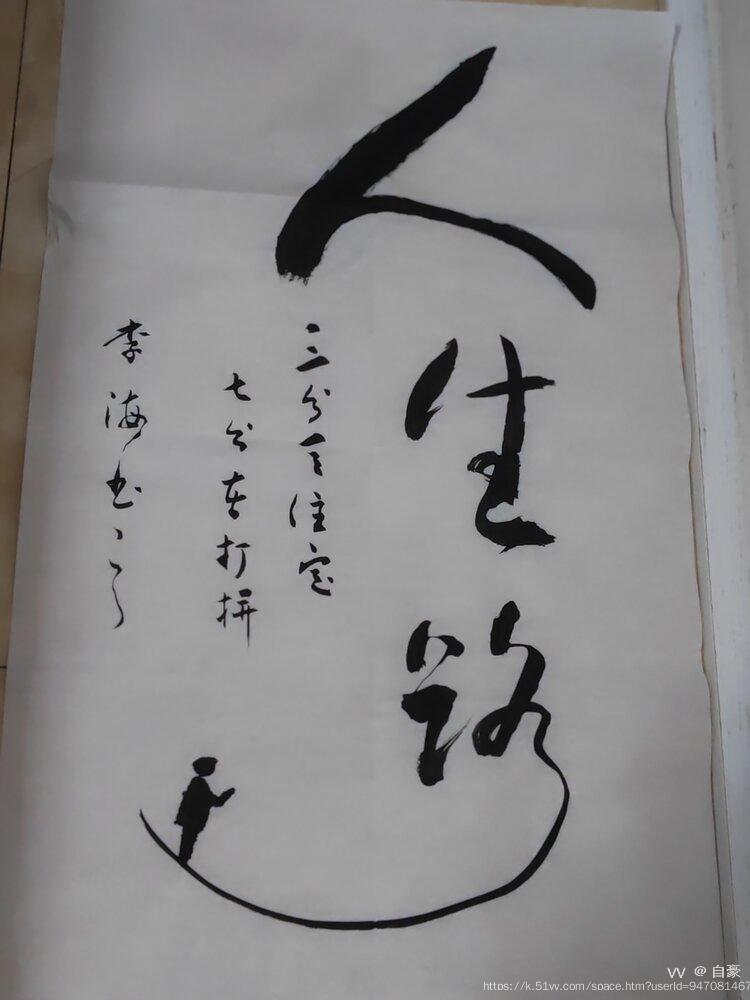 人生路
三分天注定
七分在打拼
李海书
VV @ 自豪
https://k.51vv.com/space.htm?userId=947081467